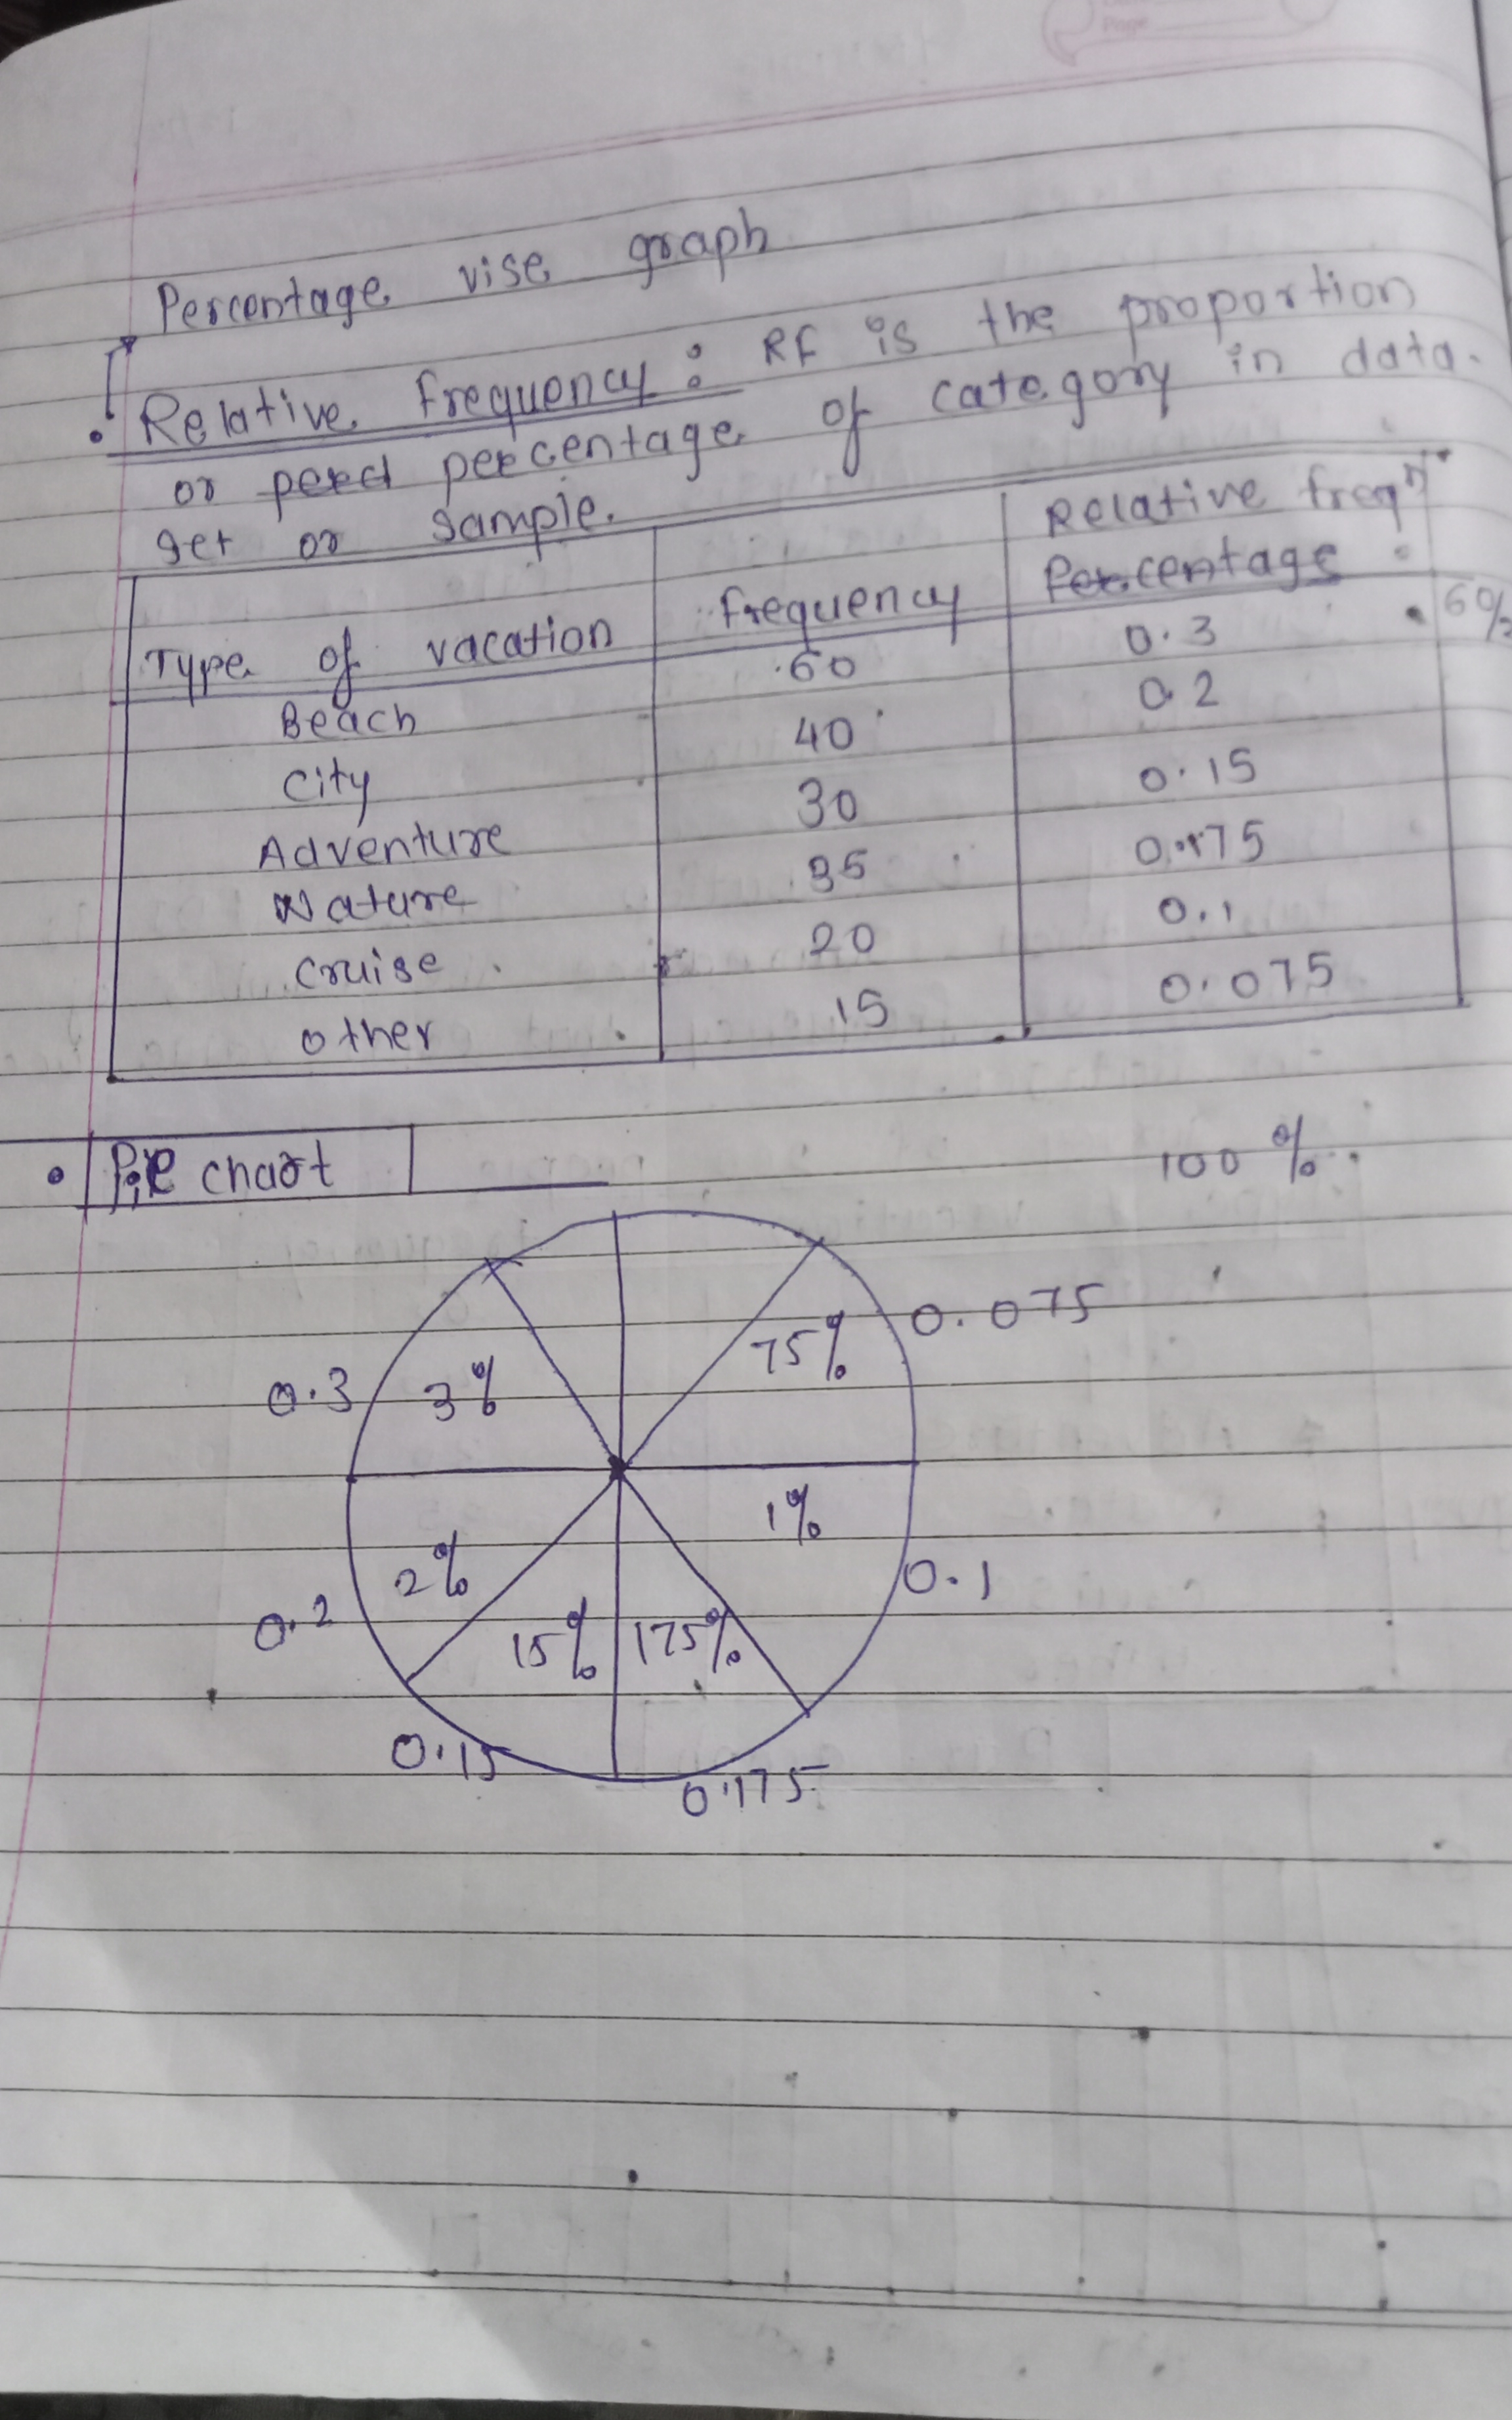 Page
Percentage vise graph
Relative frequency : RF is the proportion
or percentage of category in data
set or sample.
Type of vacation frequency Relative freqn
Percentage
Beach 60 0.3 6%
City 40 0.2
Adventure 30 0.15
Nature 35 0.175
Cruise 20 0.1
other 15 0.075
Pie chart 100 %
75% 0.075
0.3 3%
1%
2% 0.1
0.2 15% 175%
0.15 0.175